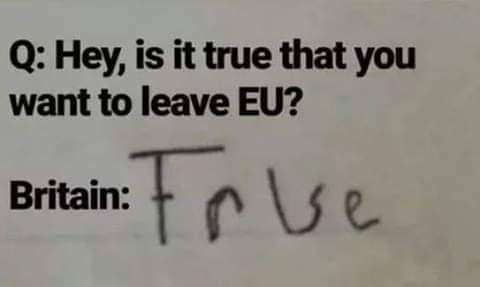 Q: Hey, is it true that you
want to leave EU?
Britain: